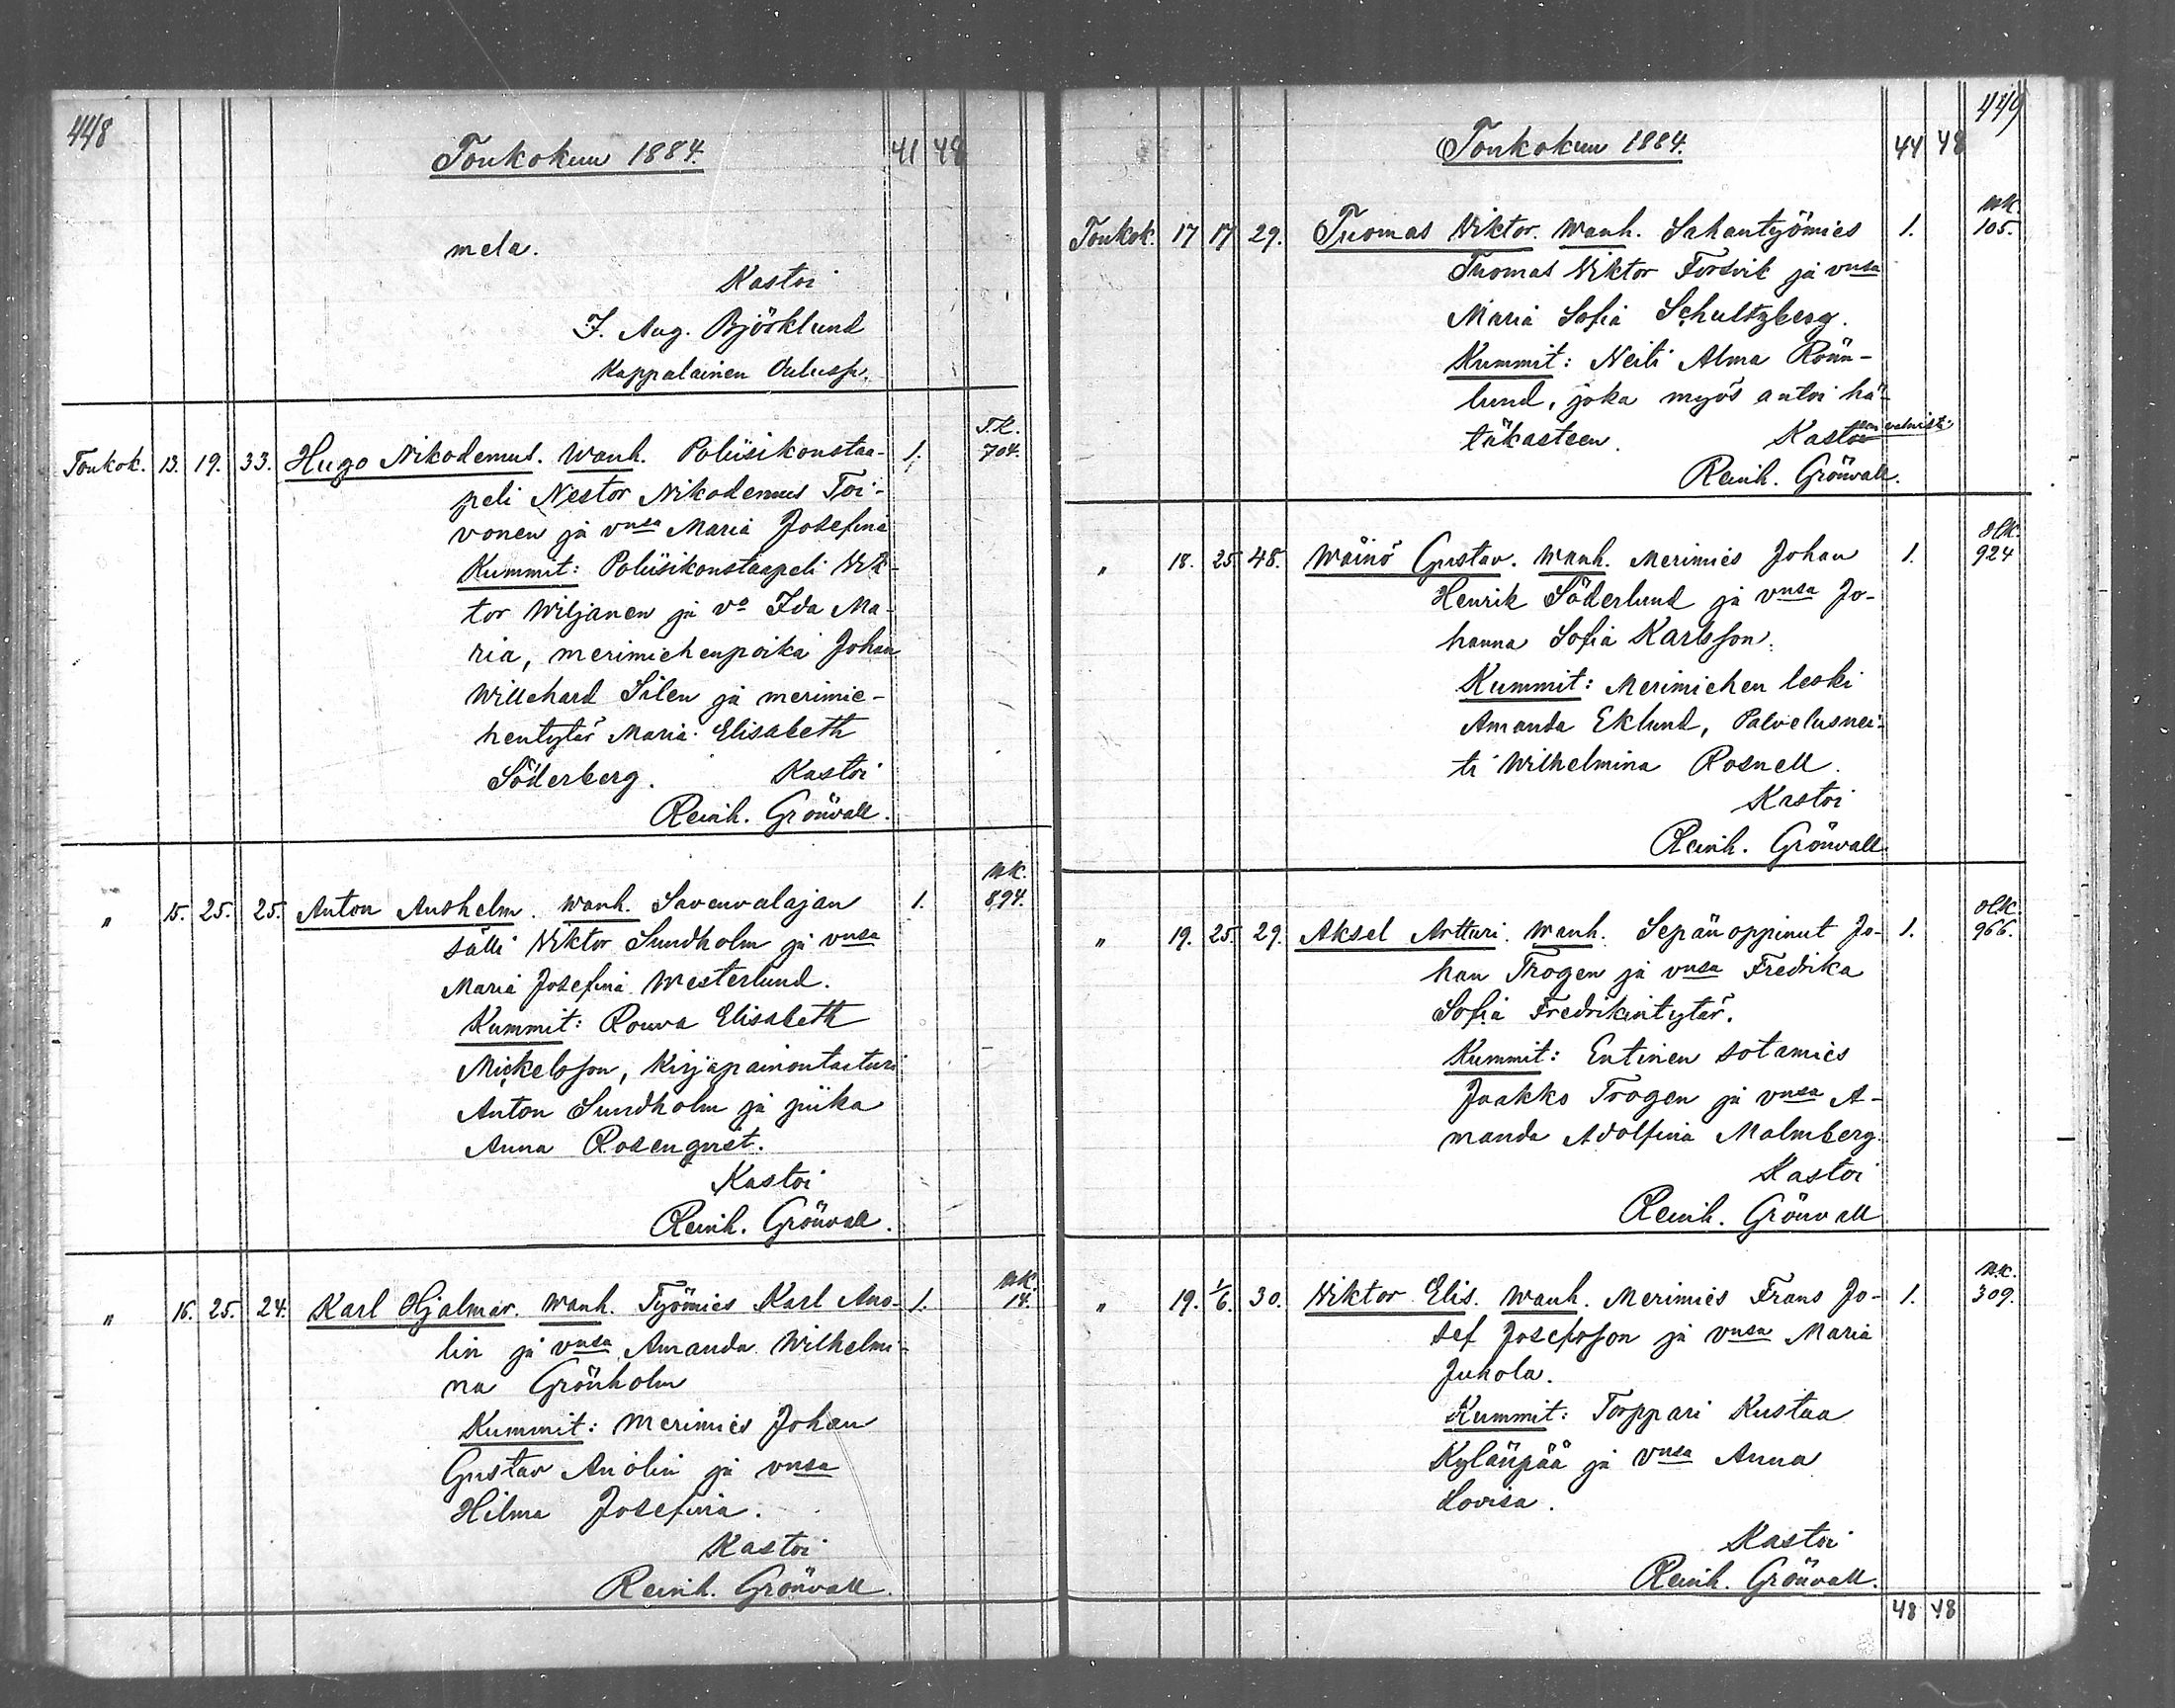 448
Toukokuu 1884. 41 48
mela.
Kastoi
J. Aug. Björklund
Kappalainen Oulussa.
T.K.
Toukok. 13. 19. 33. Hugo Nikodemus. Wanh. Poliisikonstaa- 1. 704.
peli Nestor Nikodemus Toi-
vonen ja vnsa Maria Josefina
Kummit: Poliisikonstaapeli Vik-
tor Wiljanen ja vo Ida Ma-
ria, merimiehenpoika Johan
Willehard Silen ja merimie-
hentytär Maria Elisabeth
Söderberg. Kastoi
Reinh. Grönvall.
N.K.
" 15. 25. 25. Anton Anshelm. Wanh. Savenvalajan 1. 894.
sälli Viktor Sundholm ja vnsa
Maria Josefina Westerlund.
Kummit: Rouva Elisabeth
Mickelsson, Kirjapainontaituri
Anton Sundholm ja piika
Anna Rosenqvist.
Kastoi
Reinh. Grönvall.
N.K.
" 16. 25. 24. Karl Hjalmar. Wanh. Työmies Karl Ano- 1. 14.
lin ja vnsa Amanda Wilhelmi-
na Grönholm
Kummit: Merimies Johan
Gustav Anolin ja vnsa
Hilma Josefina.
Kastoi
Reinh. Grönvall.
449
Toukokuu 1884. 44 48
N.K.
Toukok. 17 17 29. Tuomas Viktor. Wanh. Sahantyömies 1. 105.
Thomas Viktor Forsvik ja vnsa
Maria Sofia Schultzberg.
Kummit: Neiti Alma Rönn-
lund, joka myös antoi hä-
täkasteen. Kastoi
Reinh. Grönvall.
O.K.
" 18. 25. 48. Wäinö Gustav. Wanh. Merimies Johan 1. 924
Henrik Söderlund ja vnsa Jo-
hanna Sofia Karlsson.
Kummit: Merimiehen leski
Amanda Eklund, Palvelusnei-
ti Wilhelmina Rosnell.
Kastoi
Reinh. Grönvall
O.K.
" 19. 25. 29. Aksel Artturi. Wanh. Sepänoppinut Jo- 1. 966.
han Trogen ja vnsa Fredrika
Sofia Fredrikintytär.
Kummit: Entinen sotamies
Jaakko Trogen ja vnsa A-
manda Adolfina Malmberg.
Kastoi
Reinh. Grönvall
N.K.
" 19. 1/6. 30. Viktor Elis. Wanh. Merimies Frans Jo- 1. 309.
sef Josefsson ja vnsa Maria
Juhola.
Kummit: Torppari Kustaa
Kylänpää ja vnsa Anna
Lovisa.
Kastoi
Reinh. Grönvall.
48 48